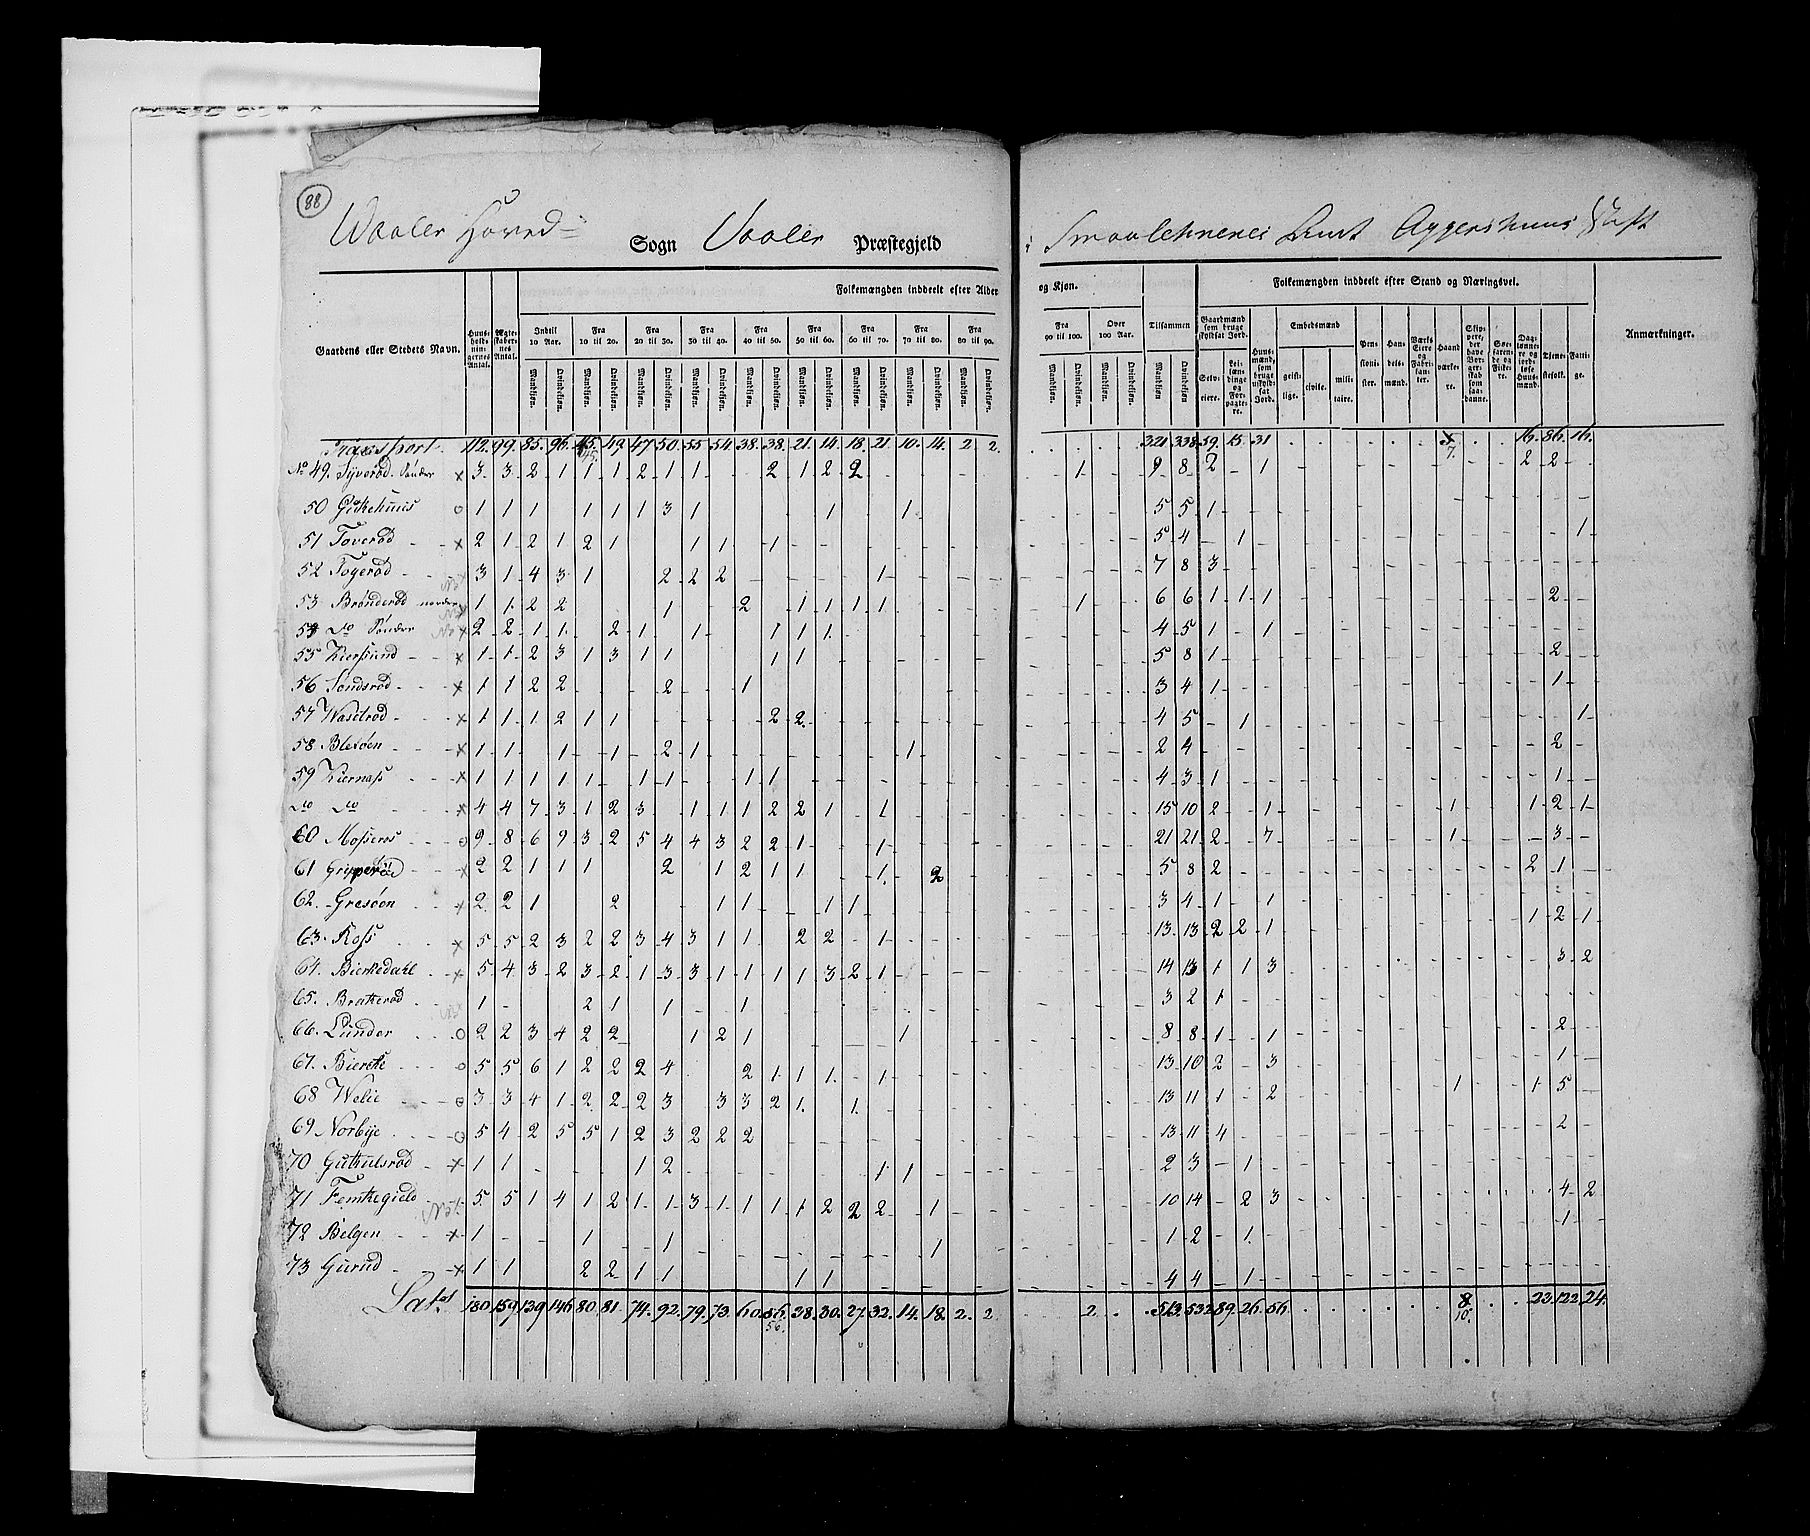 88
Waaler Hoved- Sogn Vaaler Præstegjeld i Smaalehnenes Amt Aggershuus Stift
Gaardens eller Stedets Navn.
Huus-holdnin-gernes Antal.
Ægte-skaber-nes Antal.
Folkemængden inddeelt efter Alder og Kjøn.
Indtil 10 Aar. Fra 10 til 20. Fra 20 til 30. Fra 30 til 40. Fra 40 til 50. Fra 50 til 60. Fra 60 til 70. Fra 70 til 80. Fra 80 til 90. Fra 90 til 100. Over 100 Aar. Tilsammen
Mandkiøn. Qvindekiøn.
Folkemængden inddeelt efter Stand og Næringsvei.
Gaardmænd som bruge skyldsat Jord. Selv-eiere. Lei-lænd-inge og For-pagte-re.
Huus-mænd, som bruge uskyld-sat Jord.
Embedsmænd geist-lige. civile. mili-taire.
Pen-sioni-ster.
Han-dels-mænd.
Værks-Eiere og Fabri-kan-ter.
Haand værke-re.
Skip-pere, der have Bor-ger-skab som saa-danne.
Søe-farende og Fiske-re.
Dag-lønne-re og jord-løse Huus-mænd.
Tjene-stefolk.
Fatti-ge.
Anmærkninger.
Transport. 112. 99. 85. 96. 45. 49. 47. 50. 55. 54. 38. 38. 21. 14. 18. 21. 10. 14. 2. 2. 321. 338. 59. 15. 31 7. 16. 86. 16.
45.
No 49. Syverød Sønder x 3 3 2 1 1 1 2 1 1 2 1 2 2 1 9 8 2 1 2 2
50 Girkehuus o 1 1 1 1 1 1 3 1 1 1 5 5 1
51 Toverød x 2 1 2 1 2 1 1 1 1 5 4 1 1
52 Togerød 3 1 4 3 1 2 2 2 1 7 8 3
53 Brønderød nordre 1 1 2 2 1 2 1 1 1 1 1 6 6 1 1 1 2
54 do Søndre x 2 2 1 1 2 1 1 1 1 1 4 5 1 1
55 Kiersund x 1 1 2 3 1 3 1 1 1 1 5 8 1 2
56 Sondsrød x 1 1 2 2 2 1 3 4 1 1
57 Wasetrød x 1 1 1 2 1 1 2 2 4 5 1 1
58 Bletøen x 1 1 1 1 2 1 1 2 4 2
59 Kiernass x 1 1 1 1 1 1 1 1 1 4 3 1 1
do do x 4 4 7 3 1 2 3 1 1 1 2 2 1 1 15 10 2 1 1 1 2 1
60 Mosseros o 9 8 6 9 3 2 5 4 4 3 2 2 1 1 21 21 2 7 1 3
61 Gripperød x 2 2 1 1 1 2 1 2 1 1 1 2 5 8 2 2 1
62. Gresøen x 2 2 1 2 1 1 1 1 3 4 1 1
63. Ross x 5 5 2 3 2 2 3 4 3 1 1 2 2 1 13 13 2 2 1 1 2 1
64. Bierkedahl x 5 4 3 2 3 2 1 3 3 1 1 1 1 3 2 1 14 13 1 1 3 3 2
65. Brakerød x 1 2 1 1 1 3 2 1
66. Lunder o 2 2 3 4 2 2 1 2 1 1 8 8 1 1 2
67. Biercke o 5 5 6 1 2 2 2 4 2 1 1 1 1 13 10 2 3 1
68 Welie o 3 3 4 1 2 2 2 3 3 3 2 1 1 13 11 1 2 1 1 5
69 Norbye o 5 4 2 5 5 1 2 3 2 2 2 13 11 4 2
70 Guthulsrød x 1 1 1 2 1 1 2 3 1
71 Femkegield 5 5 1 4 1 2 1 1 3 1 1 1 1 2 2 2 1 10 14 2 3 4 2
72 Belgen x 1 1 1 1 1 2 1 1
73 Gurud x 1 1 2 2 1 1 1 1 4 4 1
Lats 180. 159. 139. 146. 80. 81. 74. 92. 79. 73. 60. 56. 38. 30. 27. 32. 14. 18. 2. 2 2. 513. 532 89. 26. 56. 8. 23. 122. 24.
56. 10.